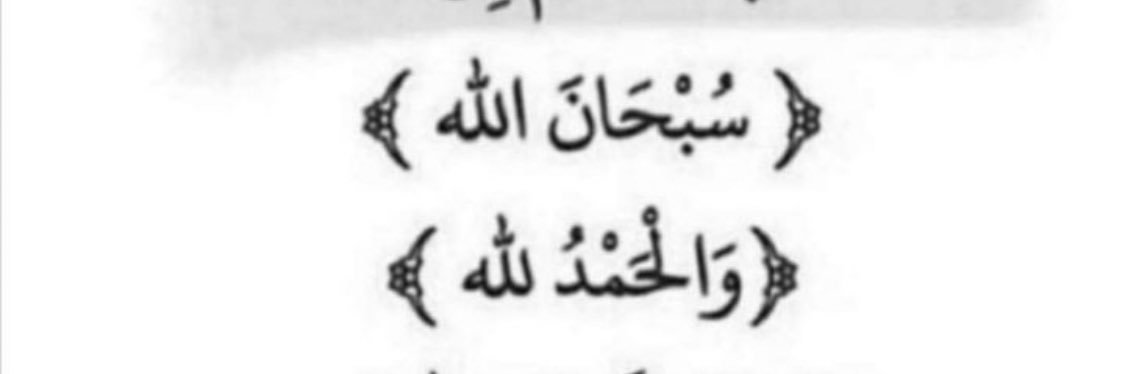 ﴿ سُبْحَانَ الله ﴾
﴿وَالْحَمْدُ لله ﴾